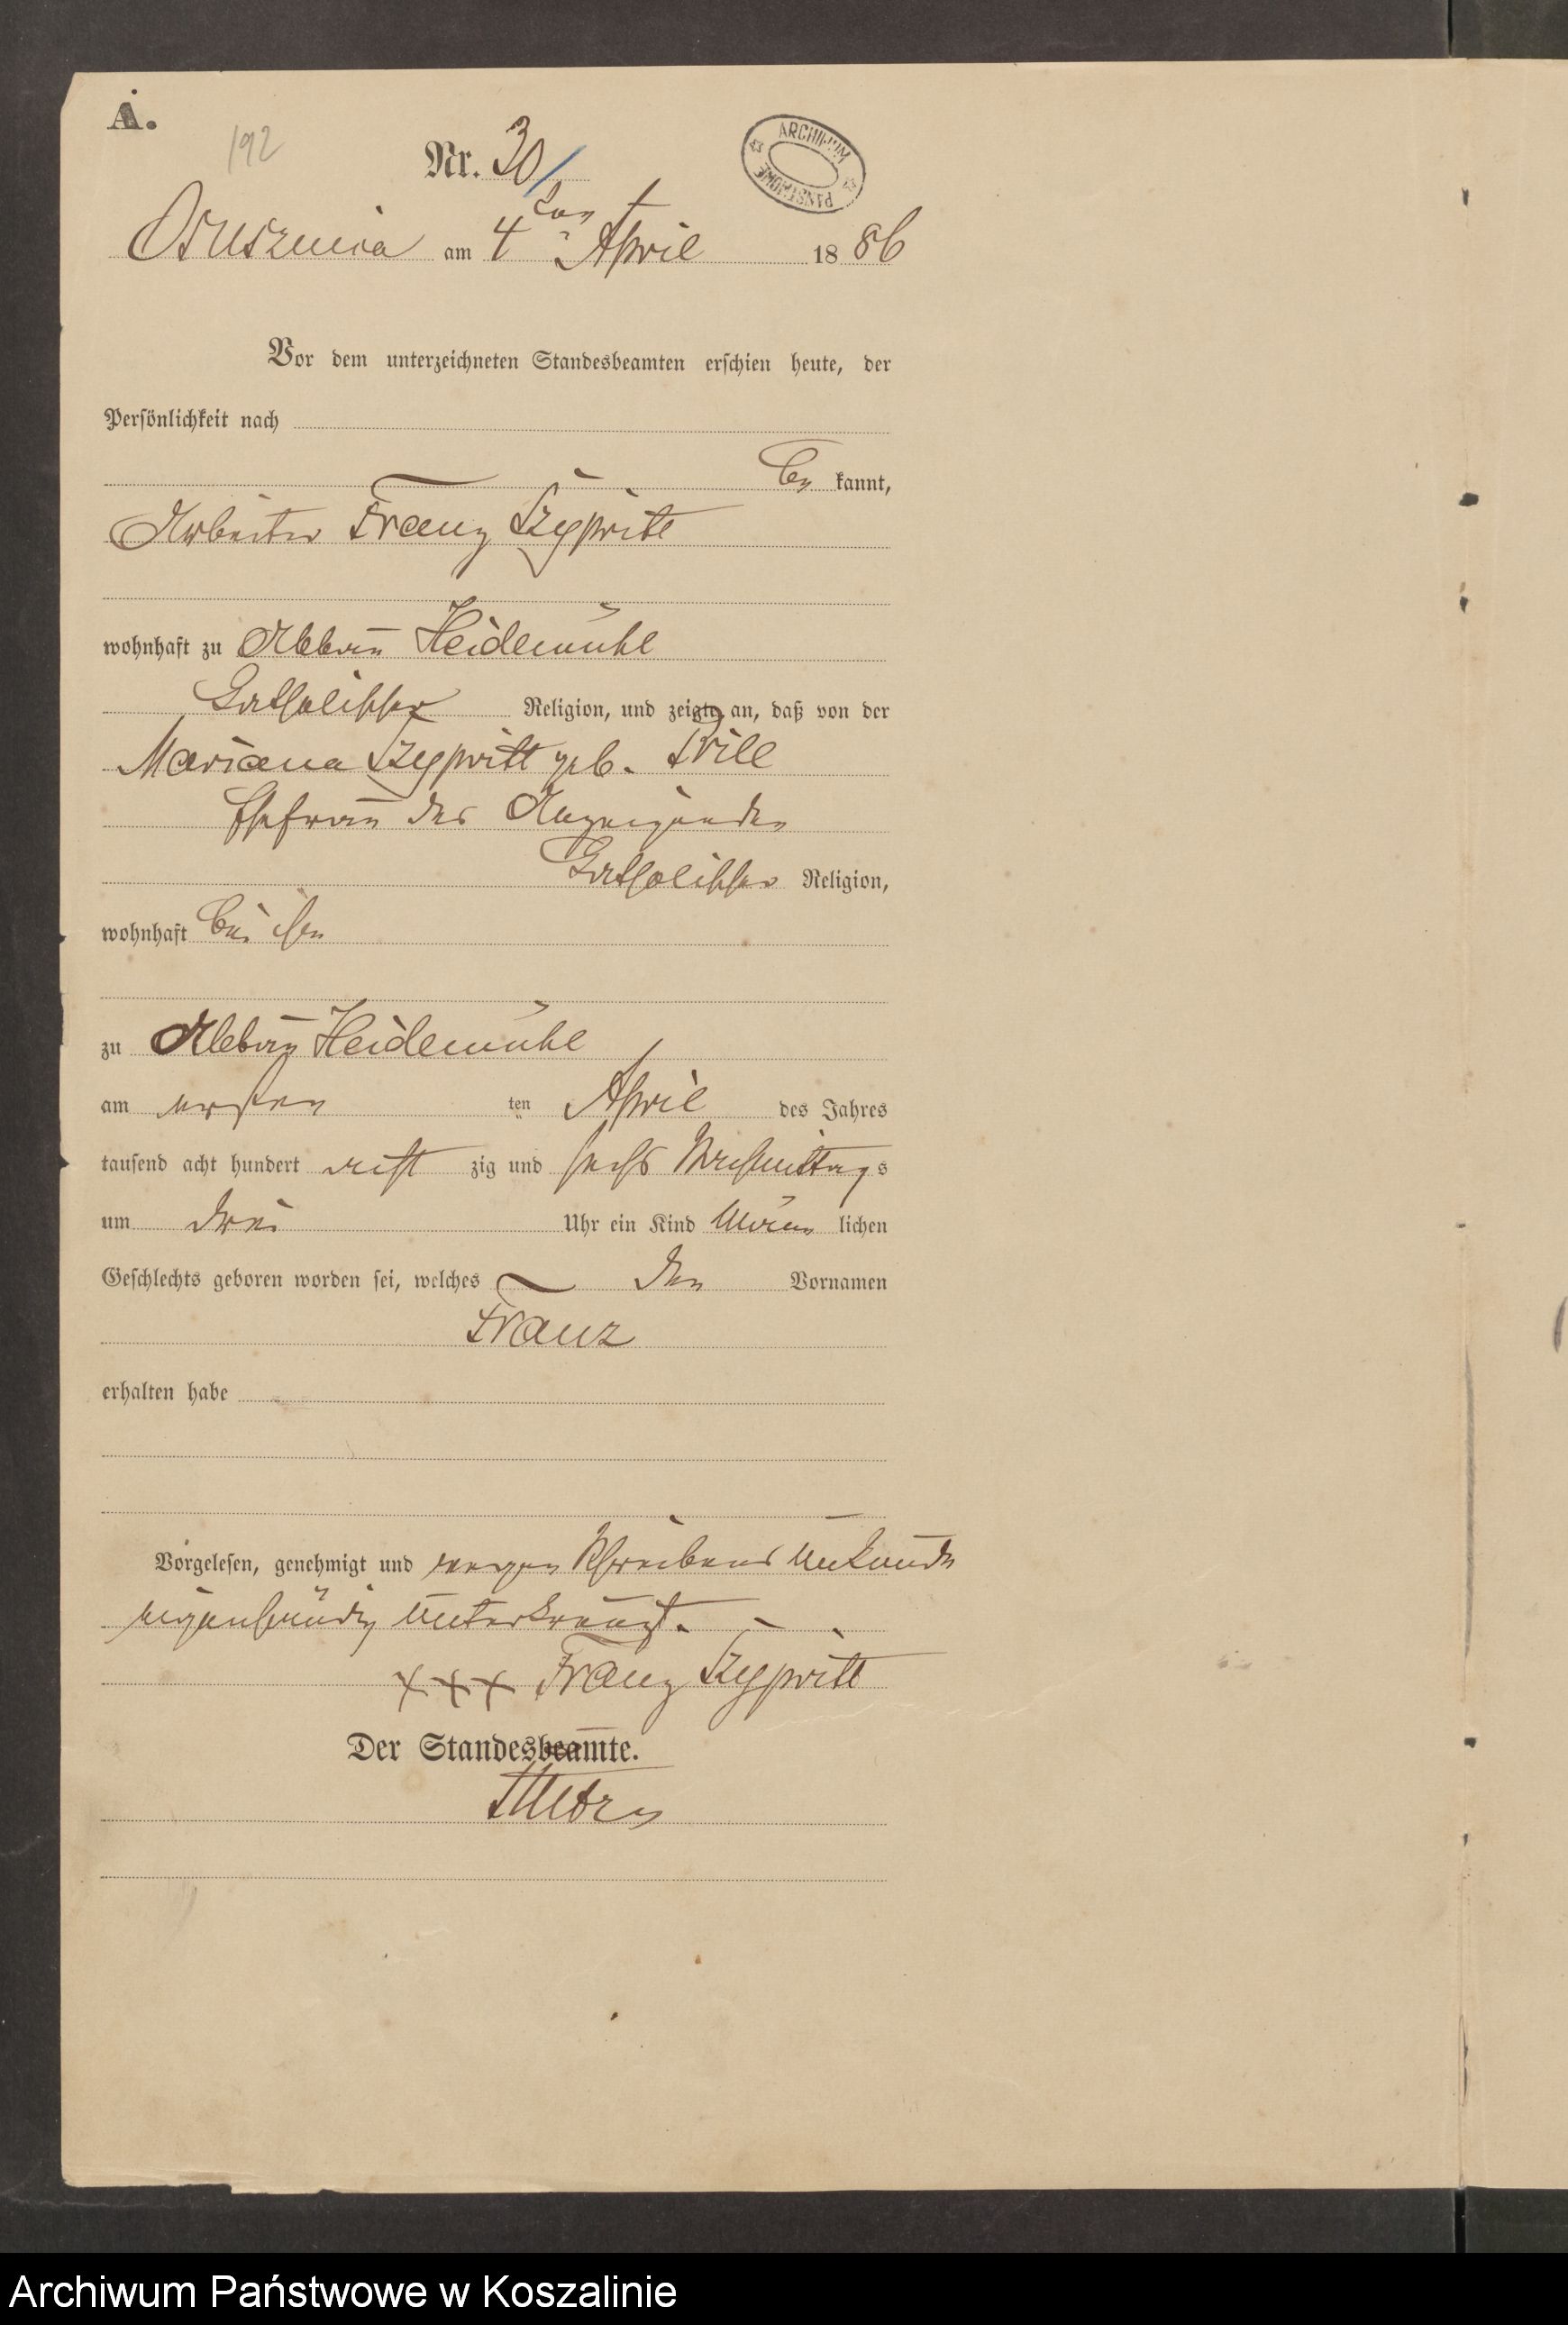 A.
192
Nr. 30
ARCHIWUM PAŃSTWOWE
Osusznica am 4ten April 1886
Vor dem unterzeichneten Standesbeamten erschien heute, der
Persönlichkeit nach
be kannt,
Arbeiter Franz Szypritt
wohnhaft zu Abbau Heidemühl
katholischer Religion, und zeigte an, daß von der
Mariana Szypritt geb. Prill
Ehefrau des Anzeigenden
katholischer Religion,
wohnhaft bei ihm
zu Abbau Heidemühl
am ersten ten April des Jahres
tausend acht hundert acht zig und sechs Nachmittags
um drei Uhr ein Kind männ lichen
Geschlechts geboren worden sei, welches den Vornamen
Franz
erhalten habe
Vorgelesen, genehmigt und wegen Schreibens Unkunde
eigenhändig unterkreuzt.
xxx Franz Szypritt
Der Standesbeamte.
Archiwum Państwowe w Koszalinie